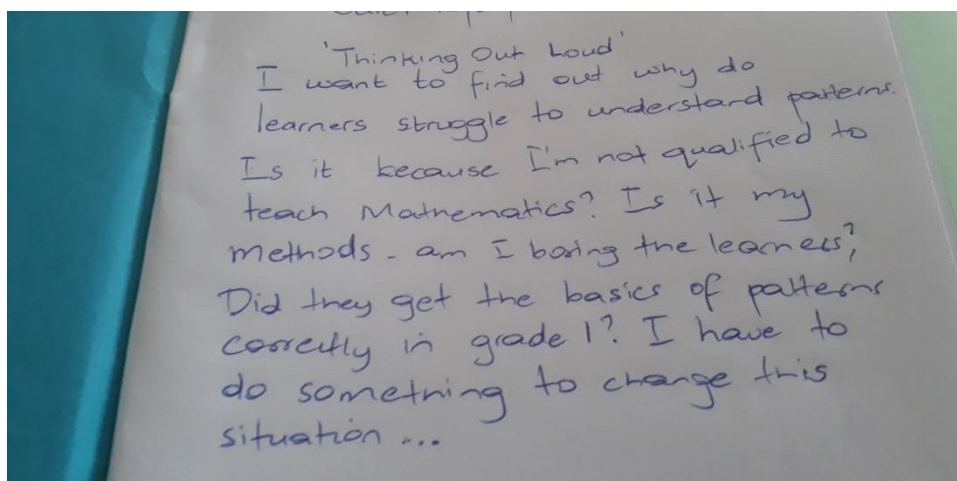 'Thinking Out Loud'
I want to find out why do
learners struggle to understand patterns.
Is it because I'm not qualified to
teach Mathematics? Is it my
methods - am I boring the learners?
Did they get the basics of patterns
correctly in grade 1? I have to
do something to change this
situation ...